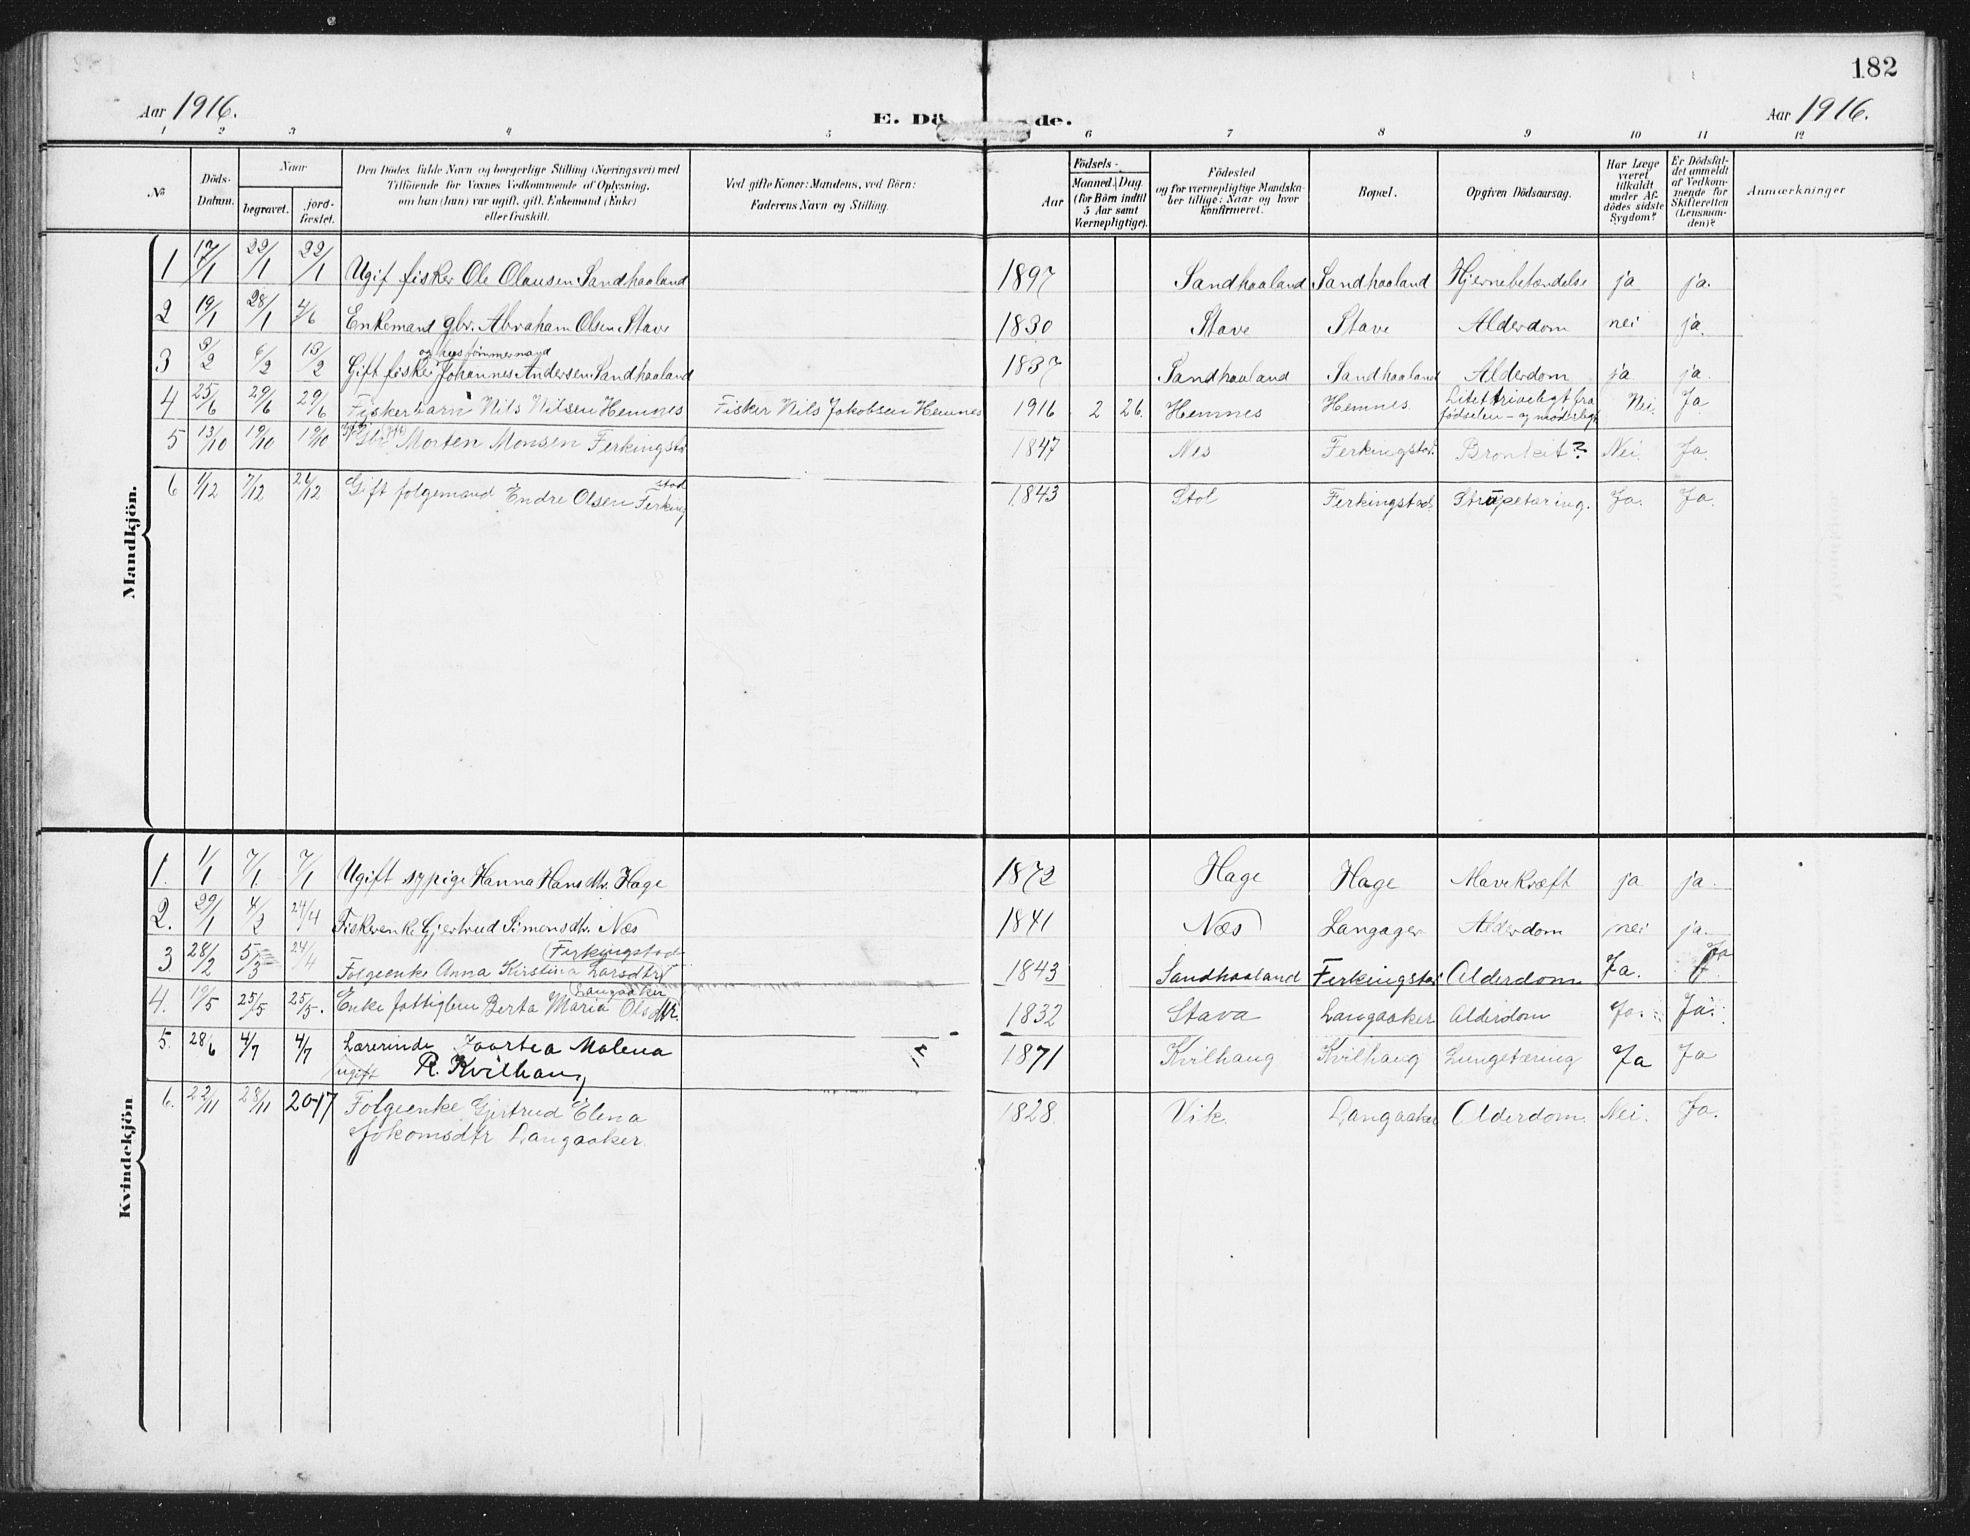 182
Aar 1916.
E. Dö de.
Aar 1916.
1 2 3 4 5 6 7 8 9 10 11 12
№
Döds-Datum.
Naar
begravet.
jord-fæstet.
Den Dödes fulde Navn og borgerlige Stilling (Næringsvei) med
Tilföiende for Voxnes Vedkommende af Oplysning,
om han (hun) var ugift, gift, Enkemand (Enke)
eller fraskilt.
Ved gifte Koner: Mandens, ved Börn:
Faderens Navn og Stilling.
Födsels-
Aar
Maaned. Dag.
(for Börn indtil
5 Aar samt
Værnepligtige).
Födested
og for værnepligtige Mandska-
ber tillige: Naar og hvor
konfirmeret.
Bopæl.
Opgiven Dödsaarsag.
Har Læge
været
tilkaldt
under Af-
dödes sidste
Sygdom?
Er Dödsfal-
det anmeldt
af Vedkom-
mende for
Skifteretten
(Lensman-
den)?
Anmærkninger
Mandkjön.
1 17/1 22/1 22/1 Ugif fisker Ole Olausen Sandhaaland 1897 Sandhaaland Sandhaaland Hjernebetændelse ja ja.
2 19/1 28/1 4/6 Enkemand gbr. Abraham Olsen Stave 1830 Stave Stave Alderdom nei ja.
3 3/2 6/2 13/2 Gift fisker Johannes Andersen Sandhaaland 1837 Sandhaaland Sandhaaland Alderdom ja ja.
4 25/6 29/6 29/6 Fiskerbarn Nils Nilsen Hemnes Fisker Nils Jakobsen Hemnes 1916 2 26. Hemnes Hemnes Litet triveligt fra Nei. Ja
födselen - og
5 13/10 19/10 19/10 Morten Monsen Ferkingst. 1847 Nes Ferkingstad. Bronkit? Nei. Ja.
6 1/12 7/12 26/12 Gift folgemand Endre Olsen Ferking 1843 Stol Ferkingstad. Strupetæring. Ja. Ja.
stad
Kvindekjön
1. 1/1 7/1 7/1 Ugift sypige Hanna Hansdtr. Hage 1872 Hage Hage Mavekræft ja ja.
2. 29/1 4/2 24/4 Fiskerenke Gjertrud Simonsdtr. Næs 1841 Næs Langager Alderdom nei ja.
Ferkingstad
3 28/2 5/3 24/4 Folgeenke Anna Kirstina Larsdtr 1843 Sandhaaland Ferkingstad Alderdom Ja. Ja
Langaaker
4. 19/5 25/5 25/5. Enke fattiglem Berta Maria Olsdtr. 1832 Stava Langaaker Alderdom Ja. Ja.
5. 28/6 4/7 4/7 Lærerinde Taartea Malena 1871 Kvilhaug Kvilhaug Lungetæring Ja Ja
ugift R. Kvilhaug
6. 22/11 28/11 20-17 Folgeenke Gjertrud Elena 1828. Vik. Langaaker Alderdom. Nei. Ja.
Jokomsdtr Langaaker.